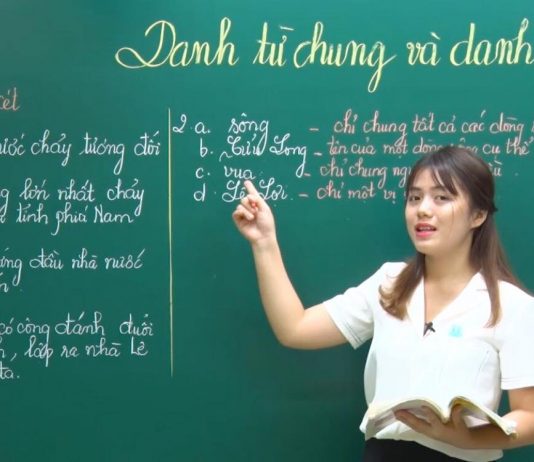 Danh từ chung và danh
xét
nước chảy tương đối
lớn nhất chảy
tỉnh phía Nam
đứng đầu nhà nước
có công đánh đuổi
, lập ra nhà Lê
ta.
2. a. sông - chỉ chung tất cả các dòng
b. Cửu Long - tên của một dòng sông cụ thể
c. vua - chỉ chung
d. Lê Lợi - chỉ một vị